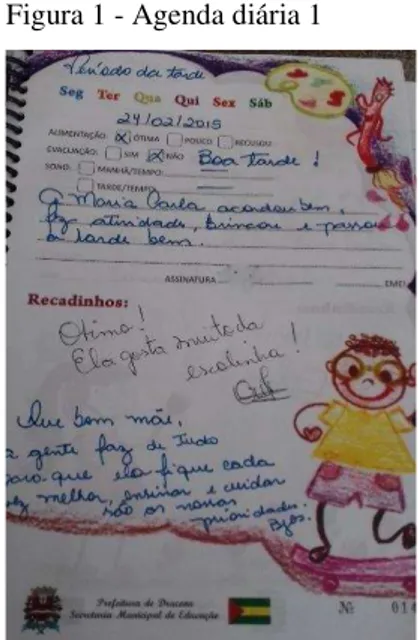 Figura 1 - Agenda diária 1
Período da tarde
Seg Ter Qua Qui Sex Sáb
24/02/2015
ALIMENTAÇÃO: X ÓTIMA POUCO RECUSOU
EVACUAÇÃO: SIM X NÃO Boa tarde!
SONO: MANHÃ/TEMPO:
TARDE/TEMPO:
A Maria Carla acordou bem,
fez atividades, brincou e passou
a tarde bem.
ASSINATURA EMEI
Recadinhos:
Ótimo!
Ela gosta muito da
escolinha!
Que bom mãe,
a gente faz de tudo
para que ela fique cada
vez melhor, ensinar e cuidar
são as nossas
prioridades.
Bjos.
Prefeitura de Dracena
Secretaria Municipal de Educação
Nº 014